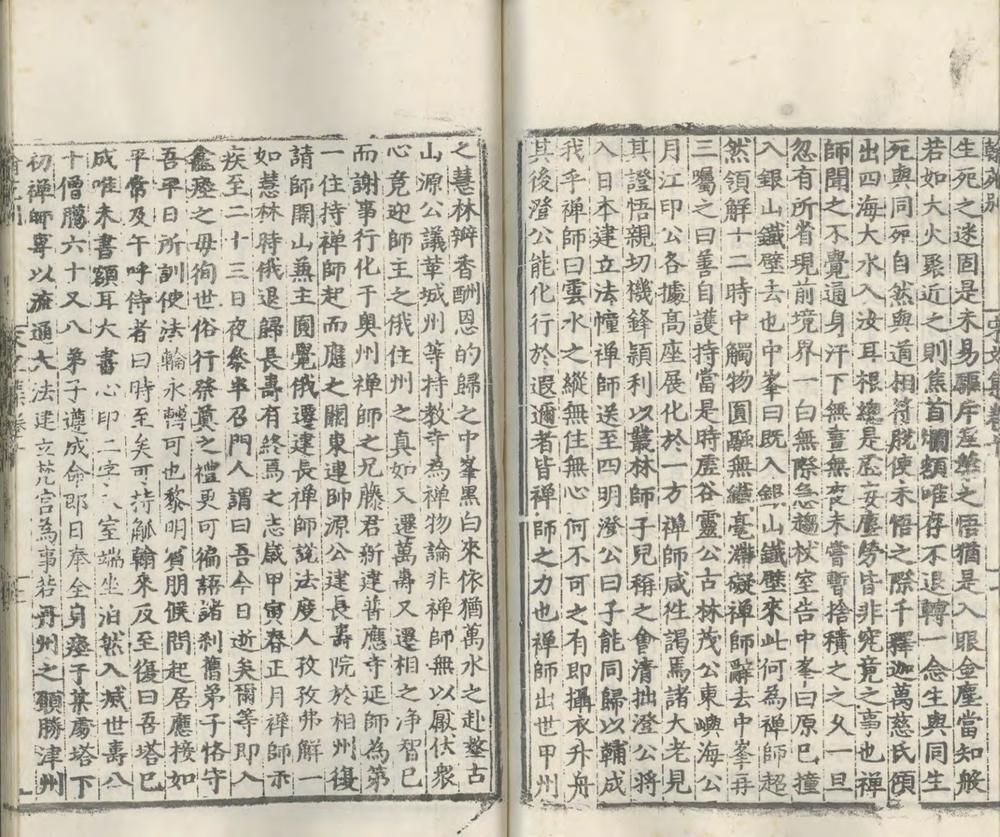 生死之迷固是未易驅斥座塵之悟猶是入眼金塵當知般
若如大火聚近之則焦首爛額唯存不退轉一念生與同生
死與同死自然與道相符脫使未悟之際千釋迦萬慈氏傾
出四海大水入汝耳根總是虛妄塵勞皆非究竟之事也禪
師聞之不覺通身汗下無晝無夜未嘗暫捨積之之久一旦
忽有所省現前境界一白無際急趨杖室告中峯曰原已撞
入銀山鐵壁去也中峯曰既入銀山鐵壁來此何為禪師超
然領解十二時中觸物圓融無纖毫滯礙禪師辭去中峯再
三囑之曰善自護持當是時虛谷靈公古林茂公東嶼海公
月江印公各據高座展化於一方禪師咸徃謁焉諸大老見
其證悟親切機鋒頴利以叢林師子兒稱之會清拙澄公將
入日本建立法幢禪師送至四明澄公曰子能同歸以輔成
我乎禪師曰雲水之縱無住無心何不可之有即攝衣升舟
其後澄公能化行於遐邇者皆禪師之力也禪師出世甲州
之慧林瓣香酬恩的歸之中峯黑白來依猶萬水之赴壑古
山源公議革城州等持教寺為禪物論非禪師無以厭伏衆
心竟迎師主之俄住州之真如又遷萬壽又遷相之净智已
而謝事行化于奥州禪師之兄藤君新建普應寺延師為第
一住持禪師起而應之關東連帥源公建長壽院於相州復
請師開山兼主圓覺俄遷建長禪師說法度人孜孜弗解一
如慧林時俄退歸長壽有終焉之志歲甲寅春正月禪師示
疾至二十三日夜參半召門人謂曰吾今日逝矣爾等即入
龕瘞之毋徇世俗行祭奠之禮更可徧語諸刹舊弟子恪守
吾平日所訓使法輪永轉可也黎明賓朋候問起居應接如
平常及午呼侍者曰時至矣可持觚翰來反至復曰吾塔已
成唯未書額耳大書心印二字入室端坐泊然入滅世壽八
十僧臘六十又八弟子遵成命即日奉全身瘞于某處塔下
初禪師專以流通大法建立梵宫為事若丹州之願勝津州